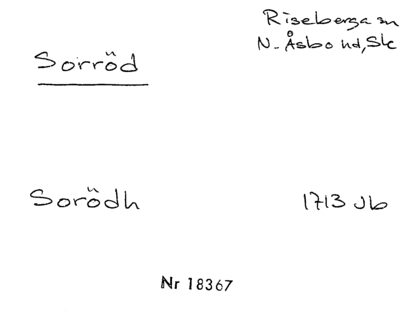 Riseberga sn
Sorröd
N. Åsbo hd, Sk
Sorödh
1713 Jb
Nr 18367